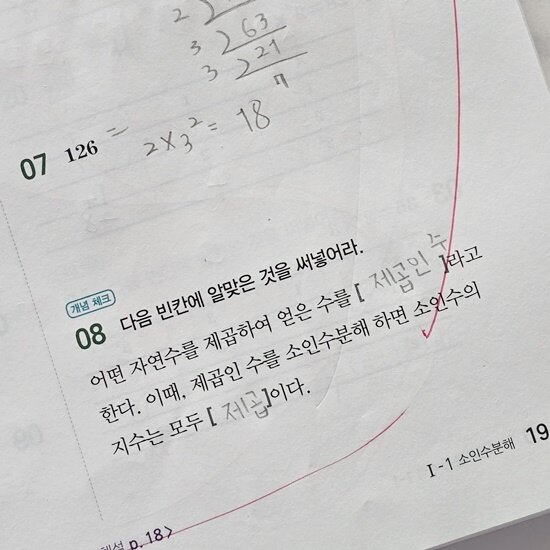 3 ) 63
3 ) 21
7
07 126 = 2×3² = 18
개념 체크
08 다음 빈칸에 알맞은 것을 써넣어라.
어떤 자연수를 제곱하여 얻은 수를 [ 제곱인 수 ]라고
한다. 이때, 제곱인 수를 소인수분해 하면 소인수의
지수는 모두 [ 제곱 ]이다.
Ⅰ-1 소인수분해 19
p.18>